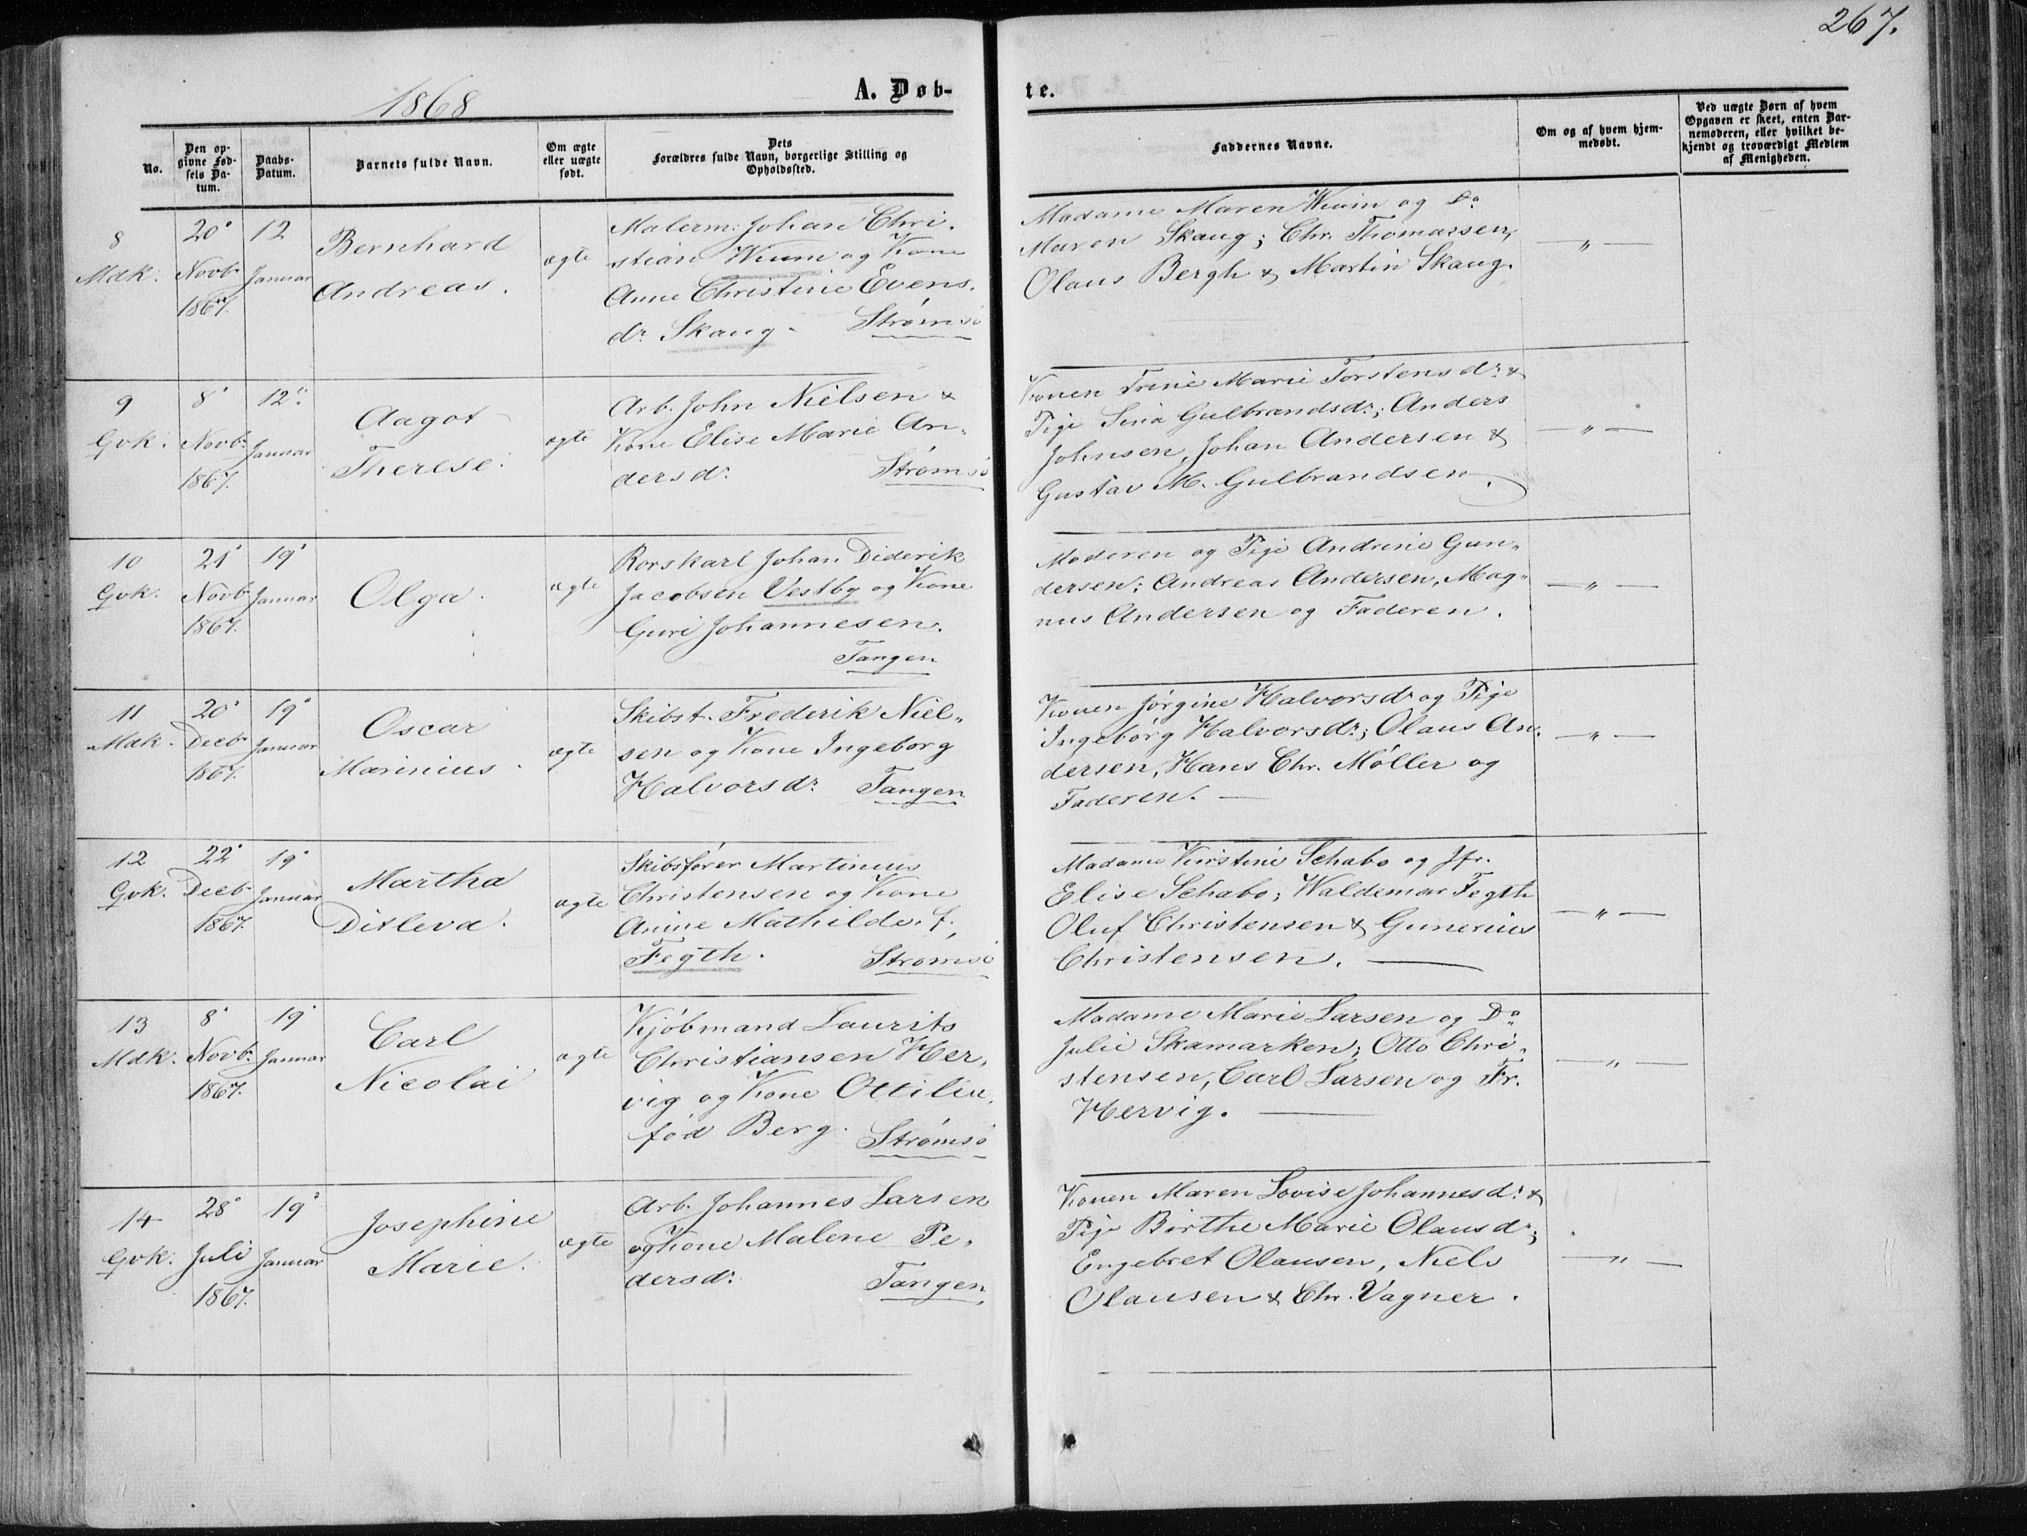 267.
1868
A. Døb-
te.
No.
Den op-
givne Fød-
sels Da-
tum.
Daabs-
Datum.
Barnets fulde Navn.
Om ægte
eller uægte
født.
Dets
Forældres fulde Navn, borgerlige Stilling og
Opholdssted.
Faddernes Navne.
Om og af hvem hjem-
medøbt.
Ved uægte Børn af hvem
Opgaven er skeet, enten Bar-
nemoderen, eller hvilket be-
kjendt og troværdigt Medlem
af Menigheden.
8
Mdk.
20
Novb.
1867.
12
Januar
Bernhard
Andreas.
ægte
Malerm: Johan Chri-
stian Wium og Kone
Anne Christine Evens-
dr. Skaug.
Strømsø
Madame Maren Wium og Do
Maren Skaug; Chr. Thomassen,
Olaus Bergh & Martin Skaug.
— „ —
9
Gvk.
8
Novb.
1867.
12
Januar
Aagot
Therese.
ægte
Arb. John Nielsen &
Kone Elise Marie An-
dersd.
Strømsø
Konen Trine Marie Torstensdr. &
Pige Sina Gulbrandsdr.; Anders
Johnsen, Johan Andersen &
Gustav M. Gulbrandsen.
— „ —
10
Gvk.
21
Novb.
1867.
19
Januar
Olga.
ægte
Rorskarl Johan Diderik
Jacobsen Vestby og Kone
Guri Johannesen.
Tangen
Moderen og Pige Andrine Gun-
dersen; Andreas Andersen, Mag-
nus Andersen og Faderen.
— „ —
11
Mdk.
20
Decb.
1867.
19
Januar
Oscar
Marinius.
ægte
Skibst. Frederik Niel-
sen og Kone Ingeborg
Halvorsdr.
Tangen
Konen Jørgine Halvorsdr. og Pige
Ingeborg Halvorsdr.; Olaus An-
dersen, Hans Chr. Møller og
Faderen. —
— „ —
12
Gvk.
22
Decb.
1867.
19
Januar
Martha
Ditleva.
ægte
Skibsfører Martinius
Christensen og Kone
Anine Mathilde, f.
Fegth.
Strømsø
Madame Kirstine Schabo og Jfr.
Elise Schabo; Waldemar Fegth
Oluf Christensen & Gunerius
Christensen. —
— „ —
13
Mdk.
8
Novb.
1867.
19
Januar
Carl
Nicolai
ægte
Kjøbmand Laurits
Christiansen Her-
vig og Kone Ottilie,
fød Berg.
Strømsø
Madame Marie Larsen og Do
Julie Skamarken; Otto Chri-
stensen, Carl Larsen og Fr.
Hervig. —
— „ —
14
Gvk.
28
Juli
1867.
19
Januar
Josephine
Marie.
ægte
Arb. Johannes Larsen
og Kone Malene Pe-
dersdr.
Tangen
Konen Maren Lovise Johannesdr. &
Pige Birthe Marie Olausdr.;
Engebret Olausen, Niels
Olausen & Chr. Vagner.
— „ —